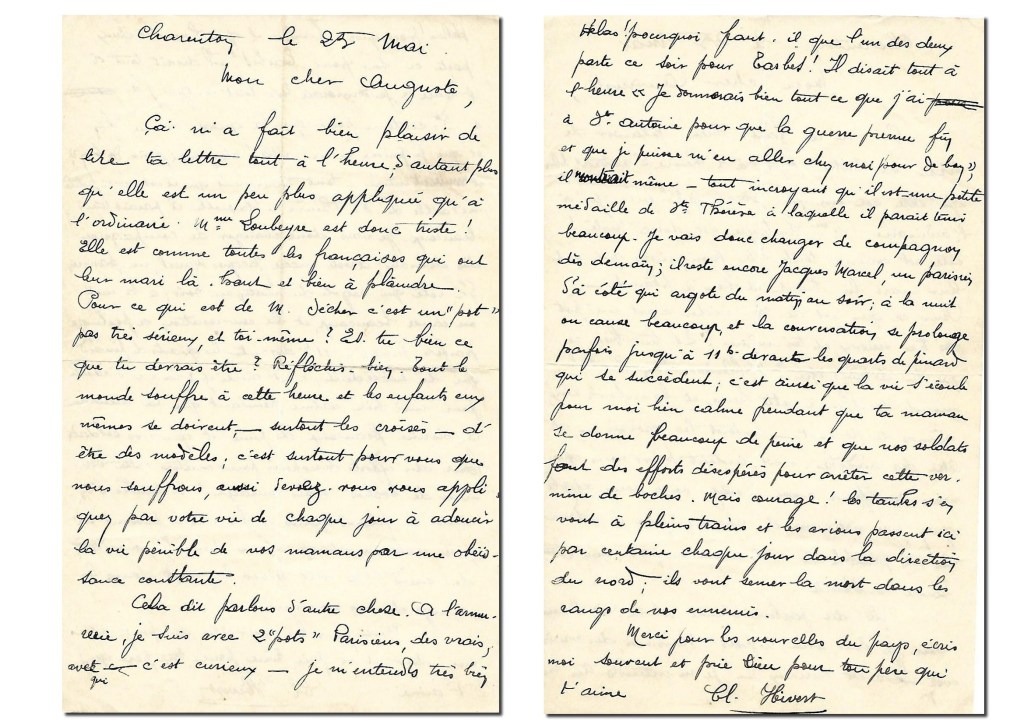 Charenton le 25 Mai.
Mon cher Auguste,
Ça m'a fait bien plaisir de
lire ta lettre tout à l'heure, d'autant plus
qu'elle est un peu plus appliquée qu'à
l'ordinaire. Mme Loubeyre est donc triste!
Elle est comme toutes les françaises qui ont
leur mari là-haut et bien à plaindre.
Pour ce qui est de M. Décher c'est un "pot"
pas très sérieux, et toi-même? Es-tu bien ce
que tu devrais être? Réfléchis-bien. Tout le
monde souffre à cette heure et les enfants eux
mêmes se doivent, — surtout les croisés — d'
être des modèles; c'est surtout pour vous que
nous souffrons, aussi devez-vous vous appli
quez par votre vie de chaque jour à adoucir
la vie pénible de vos mamans par une obéis-
sance constante.
Cela dit parlons d'autre chose. A l'armu-
rerie, je suis avec 2 "pots" Parisiens, des vrais,
avec qui — c'est curieux — je m'entends très bien
Hélas! pourquoi faut-il que l'un des deux
parte ce soir pour Tarbes! Il disait tout à
l'heure « Je donnerais bien tout ce que j'ai
à St. Antoine pour que la guerre prenne fin
et que je puisse m'en aller chez moi pour de bon »,
il montrait même — tout incroyant qu'il est une petite
médaille de Ste Thérèse à laquelle il parait tenir
beaucoup. Je vais donc changer de compagnon
dès demain; il reste encore Jacques Marcel, un parisien
d'à côté qui argote du matin au soir; à la nuit
on cause beaucoup, et la conversation se prolonge
parfois jusqu'à 11h devant les quarts de pinard
qui se succèdent; c'est ainsi que la vie s'écoule
pour moi bien calme pendant que ta maman
se donne beaucoup de peine et que nos soldats
font des efforts désespérés pour arrêter cette ver-
mine de boches. Mais courage! les tanks s'en
vont à pleins trains et les avions passent ici
par centaine chaque jour dans la direction
du nord, — ils vont semer la mort dans les
rangs de nos ennemis.
Merci pour les nouvelles du pays, écris
moi souvent et prie Dieu pour ton père qui
t'aime Cl. Hivert